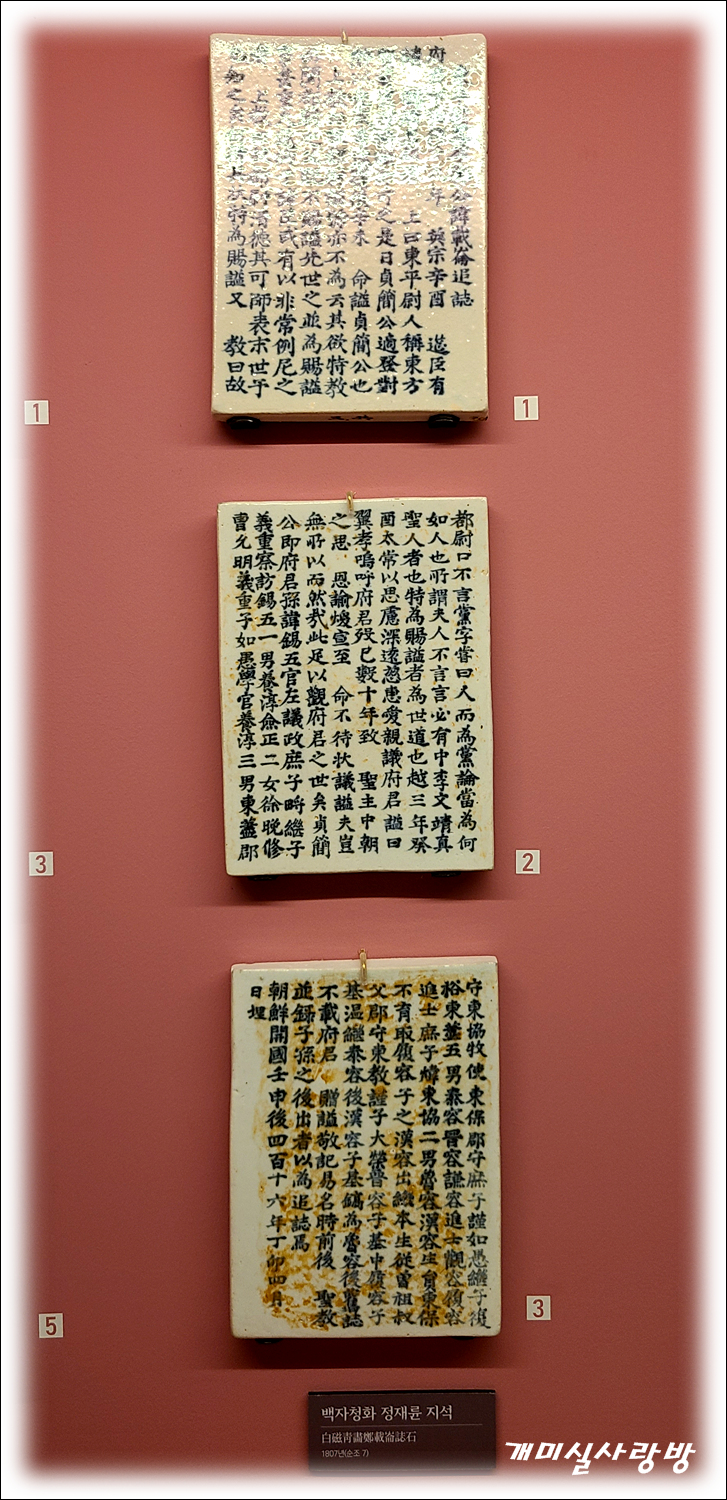 公諱載崙追誌
年 英宗辛酉 筵臣有
上曰東平尉人稱東方
之是日貞簡公適登對
命謚貞簡公也
亦不為云其欲特教
不賜謚先世之並為賜謚
或有以非常例尼之
清德其可師表末世乎
特為賜謚又 教曰故
1
1
都尉口不言黨字嘗曰人而為黨論當為何
如人也所謂夫人不言言必有中李文靖真
聖人者也特為賜謚者為世道也越三年癸
酉太常以思慮深遠慈惠愛親議府君謚曰
翼孝嗚呼府君歿已數十年致 聖主中朝
之思 恩諭煥宣至 命不待狀議謚夫豈
無所以而然哉此足以觀府君之世矣貞簡
公即府君孫諱錫五官左議政庶子畤繼子
義重察訪錫五一男養淳僉正二女徐晚修
曹允明義重子如愚學官養淳三男東藎郡
3
2
守東協牧使東保郡守庶子謹如愚繼子復
裕東藎五男泰容晉容謙容進士觀容復容
進士庶子煒東協二男魯容漢容生員東保
不育取復容子之漢容出繼本生從曾祖叔
父郡守東教謹子大榮晉容子基中復容子
基溫繼泰容後漢容子基鎬為魯容後舊誌
不載府君 贈謚敬記易名時前後 聖教
並錄子孫之後出者以為追誌焉
朝鮮開國壬申後四百十六年丁卯四月
日埋
5
3
백자청화 정재륜 지석
白磁靑畵鄭載崙誌石
1807년(순조 7)
개미실사랑방